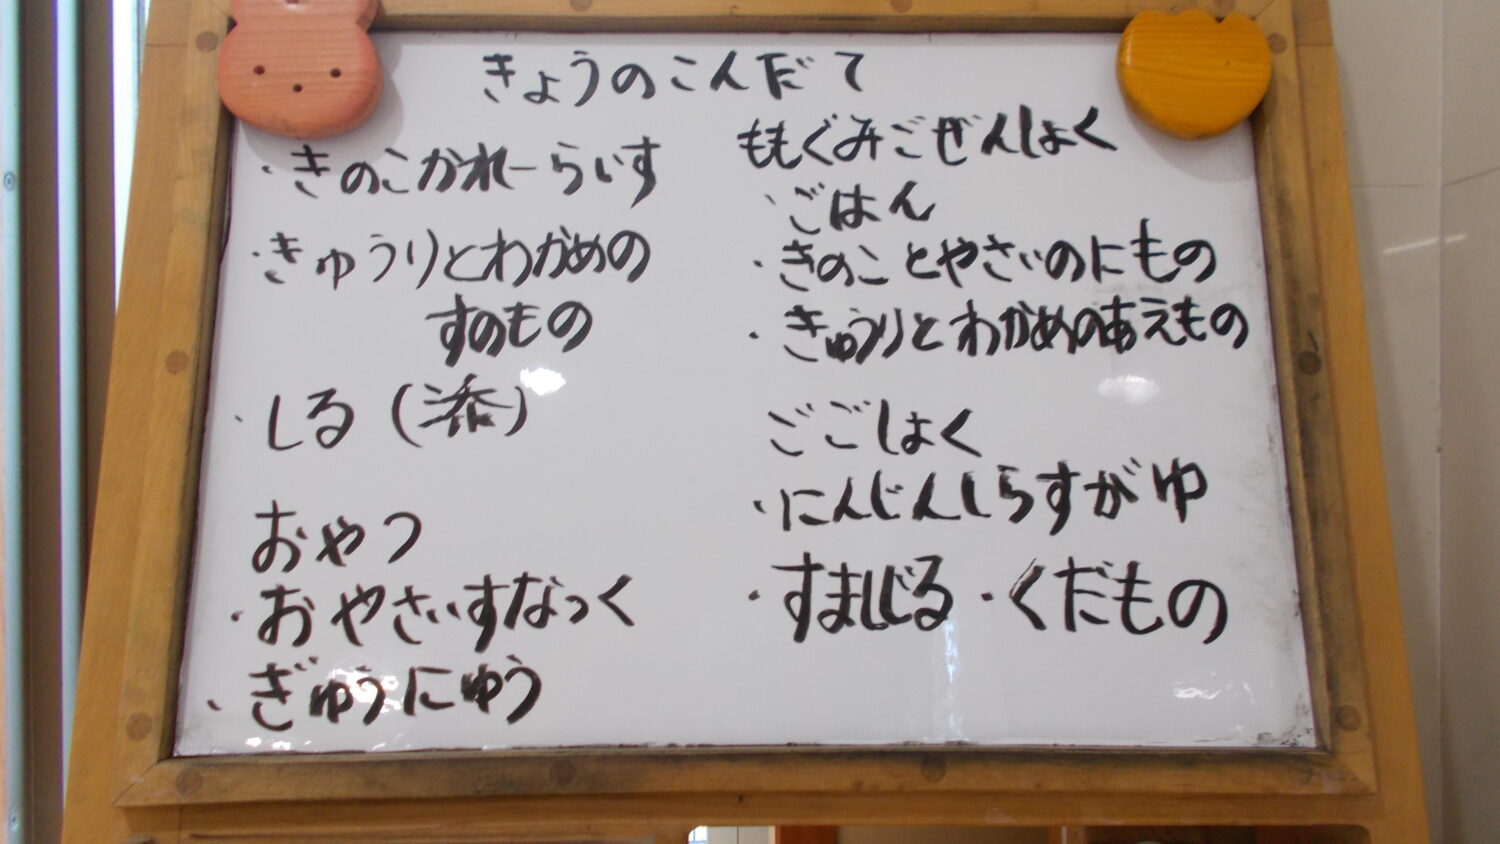 きょうのこんだて
・きのこかれーらいす
・きゅうりとわかめの
すのもの
・しる(添)
おやつ
・おやさいすなっく
・ぎゅうにゅう
ももぐみごぜんしょく
・ごはん
・きのことやさいのにもの
・きゅうりとわかめのあえもの
ごごしょく
・にんじんしらすがゆ
・すましじる・くだもの